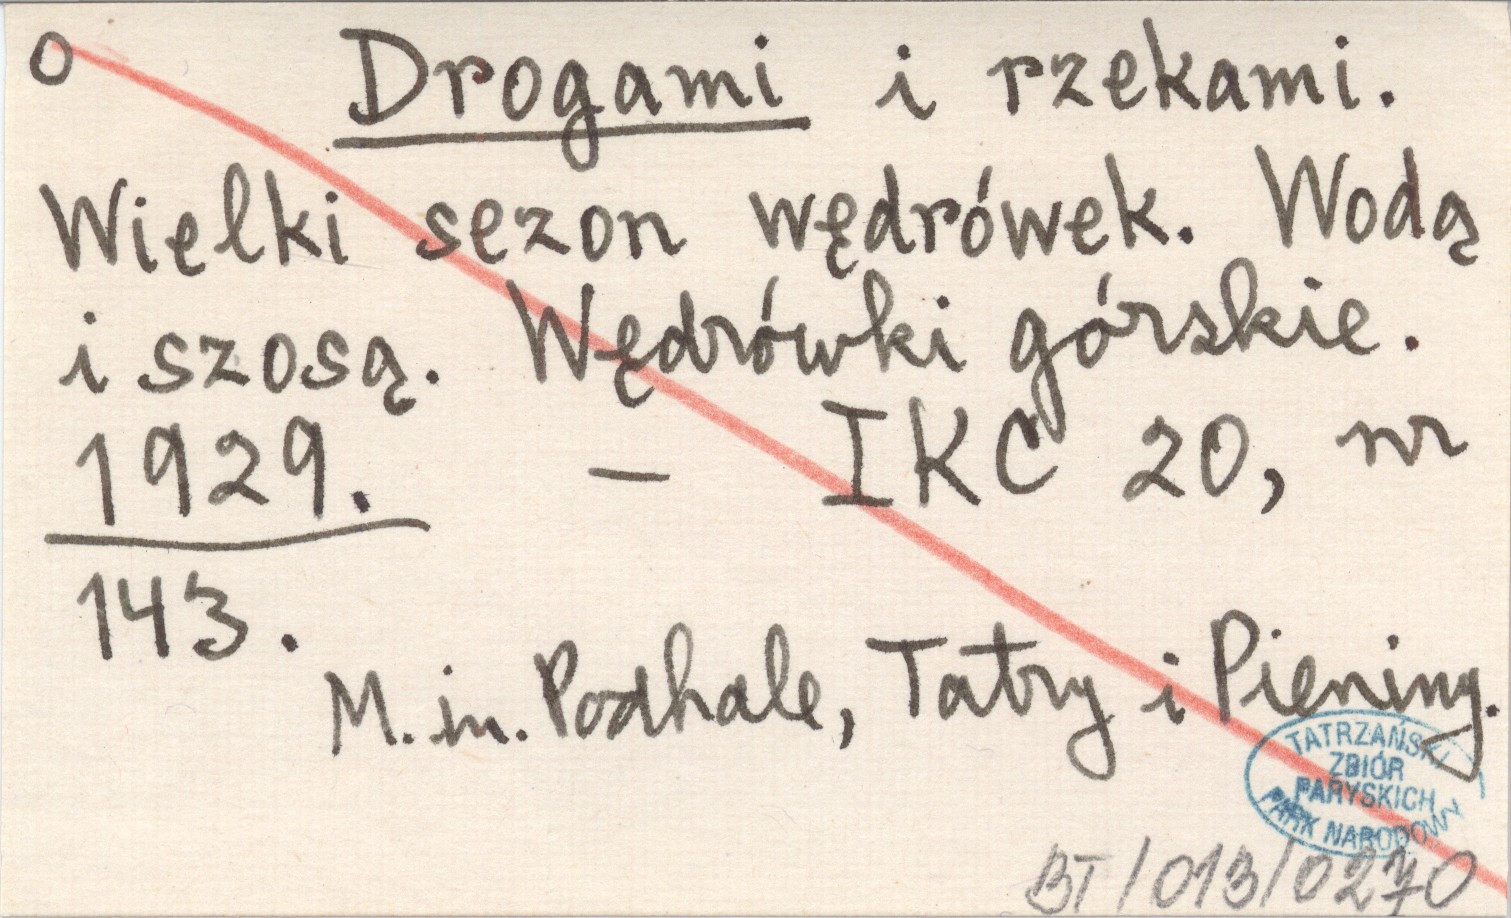 O Drogami i rzekami.
Wielki sezon wędrówek. Wodą
i szosą. Wędrówki górskie.
1929. — IKC 20, nr
143.
M. in. Podhale, Tatry i Pieniny.
TATRZAŃSKI
ZBIÓR
PARYSKICH
PARK NARODOWY
BT/013/0270